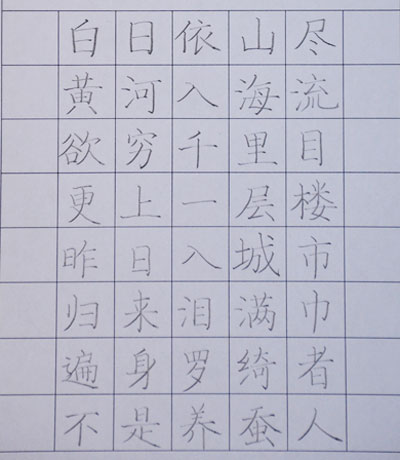 白日依山尽
黄河入海流
欲穷千里目
更上一层楼
昨日入城市
归来泪满巾
遍身罗绮者
不是养蚕人